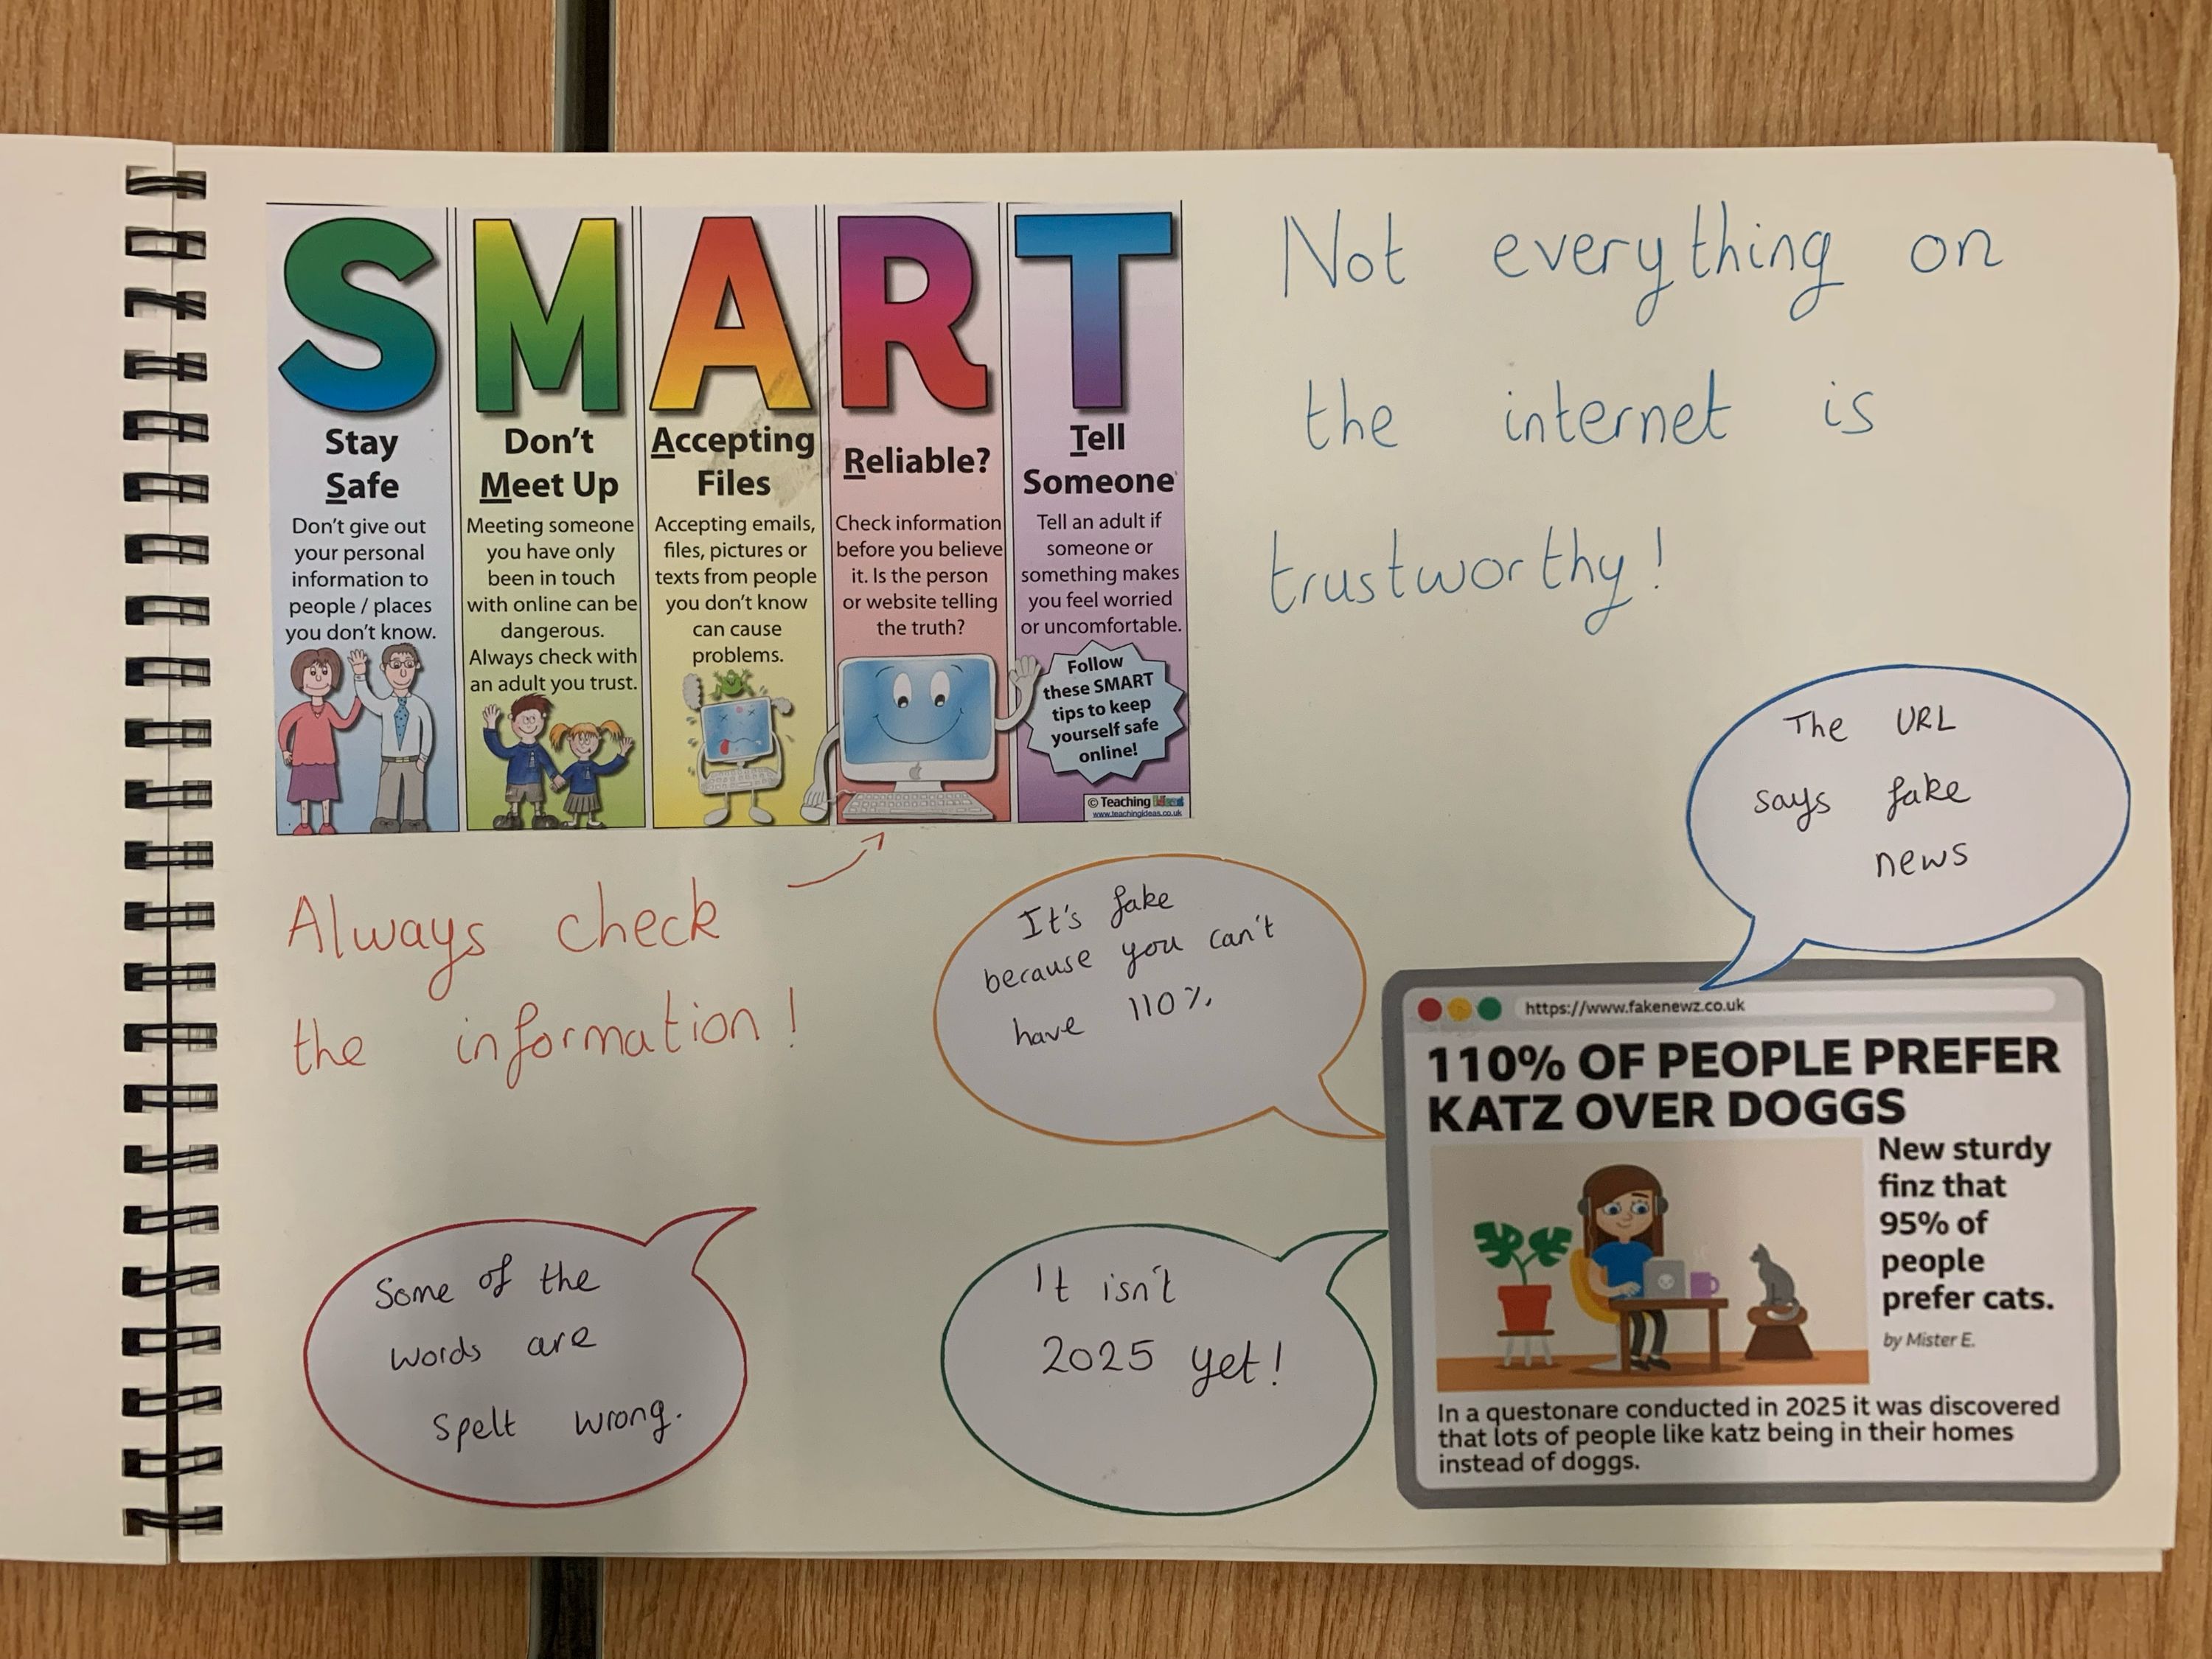 SMART
Stay
Safe
Don't give out
your personal
information to
people / places
you don't know.
Don't
Meet Up
Meeting someone
you have only
been in touch
with online can be
dangerous.
Always check with
an adult you trust.
Accepting
Files
Accepting emails,
files, pictures or
texts from people
you don't know
can cause
problems.
Reliable?
Check information
before you believe
it. Is the person
or website telling
the truth?
Tell
Someone
Tell an adult if
someone or
something makes
you feel worried
or uncomfortable.
Follow
these SMART
tips to keep
yourself safe
online!
© Teaching Ideas
www.teachingideas.co.uk
Not everything on
the internet is
trustworthy!
Always check
the information!
The URL
says fake
news
It's fake
because you can't
have 110%
Some of the
words are
spelt wrong.
It isn't
2025 yet!
https://www.fakenewz.co.uk
110% OF PEOPLE PREFER
KATZ OVER DOGGS
New sturdy
finz that
95% of
people
prefer cats.
by Mister E.
In a questonare conducted in 2025 it was discovered
that lots of people like katz being in their homes
instead of doggs.